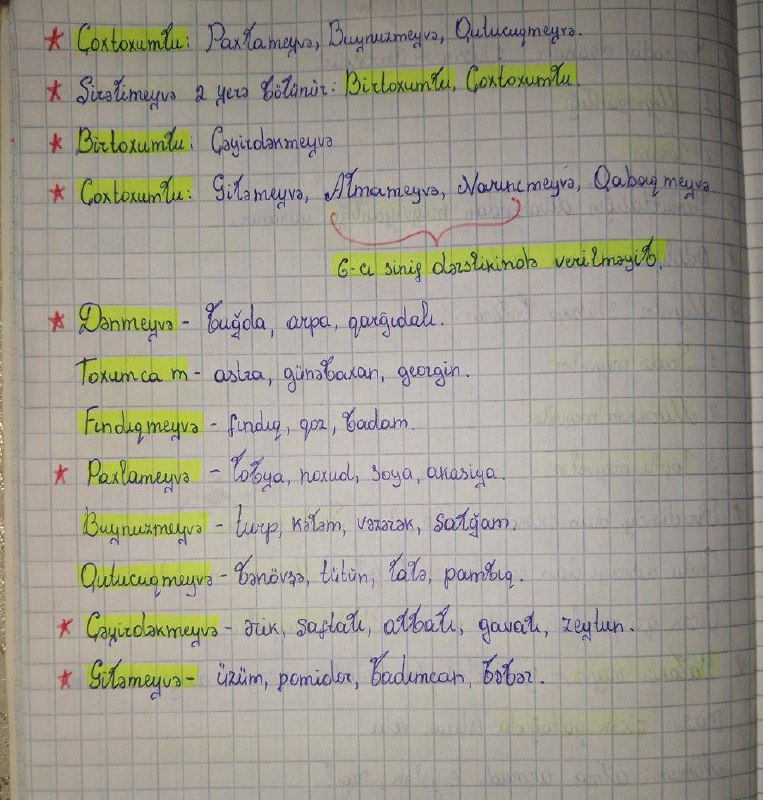 * Çoxtoxumlu: Paxlameyvə, Buynuzmeyvə, Qutucuqmeyvə.
* Şirəlimeyvə 2 yerə bölünür: Birtoxumlu, Çoxtoxumlu.
* Birtoxumlu: Çəyirdəkmeyvə
* Çoxtoxumlu: Giləmeyvə, Almameyvə, Narıncmeyvə, Qabaqmeyvə
6-cı sinif dərslikində verilməyib.
* Dənmeyvə - buğda, arpa, qarğıdalı.
Toxumca m - astra, günəbaxan, georgin.
Fındıqmeyvə - fındıq, qoz, badam.
* Paxlameyvə - lobya, noxud, soya, akasiya.
Buynuzmeyvə - turp, kələm, vəzərək, şalğam.
Qutucuqmeyvə - bənövşə, tütün, lalə, pambıq.
* Çəyirdəkmeyvə - ərik, şaftalı, albalı, gavalı, zeytun.
* Giləmeyvə - üzüm, pomidor, badımcan, bibər.